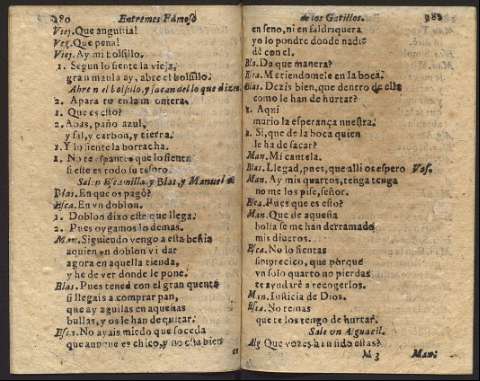 280 Entremes Famoso
Viej. Que angustia!
Vez. Que pena!
Viej. Ay mi bolsillo.
1. Segun lo siente la vieja,
gran maula ay, abre el bolsillo.
Abren el bolsillo, y sacan dello que dizen.
2. Apara tu en la montera.
1. Que es esto?
2. Abas, paño azul,
y sal, y carbon, y tierra.
1. Y lo sienta la borracha.
2. No te espantes que lo sienta
si este es todo su tesoro.
Salen Escamilla, y Blas, y Manuel
Blas. En que os pagò?
Esca. En vn doblon.
1. Doblon dixo este que llega.
2. Pues oygamos lo demas.
Man. Siguiendo vengo a esta bestia
a quien vn doblon vi dar
agora en aquella tienda,
y he de ver donde le pone.
Blas. Pues tened con el gran quenta
si llegais a comprar pan,
que ay aguilas en aquestas
bullas, y os le han de quitar.
Esca. No ayais miedo que suceda
que aunque es chico, y no està bien
en
de los Gatillos. 281
en seno, ni en faldriquera
yo lo pondre donde nadie
dè con el.
Bls. De que manera?
Esca. Metiendomele en la boca.
Blas. Dezis bien, que dentro de ella
como le han de hurtar?
1. Aqui
mariò la esperança nuestra.
2. Si, que de la boca quien
le ha de sacar?
Man. Mi cautela.
Blas. Llegad, pues, que alli os espero Vas.
Man. Ay mis quartos, tenga tenga
no me los pise, señor.
Esca. Pues que es esto?
Man. Que de aquesta
bolsa se me han derramado
mis dineros.
Esca. No lo sientas
simplecico, que porque
vn solo quarto no pierdas
te ayudarè a recogerlos.
Man. Iusticia de Dios.
Esca. No temas
que te los tengo de hurtar.
Sale vn Alguacil.
Alg. Que vozes an sido estas?
M 3 Man.